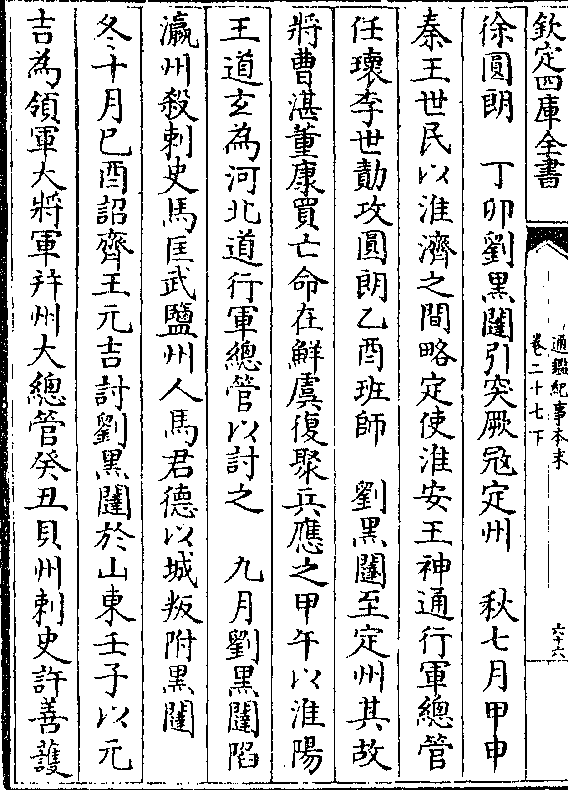 欽定四庫全書
通鑑紀事本末
卷二十七下
六十六
徐圓朗　丁卯劉黑闥引突厥冦定州　秋七月甲申
秦王世民以淮濟之間略定使淮安王神通行軍總管
任瓌李世勣攻圓朗乙酉班師　劉黑闥至定州其故
將曹湛董康買亡命在鮮虞復聚兵應之甲午以淮陽
王道玄為河北道行軍總管以討之　九月劉黑闥陷
瀛州殺刺史馬匡武鹽州人馬君德以城叛附黑闥
冬十月已酉詔齊王元吉討劉黑闥於山東壬子以元
吉為領軍大將軍并州大總管癸丑貝州刺史許善護